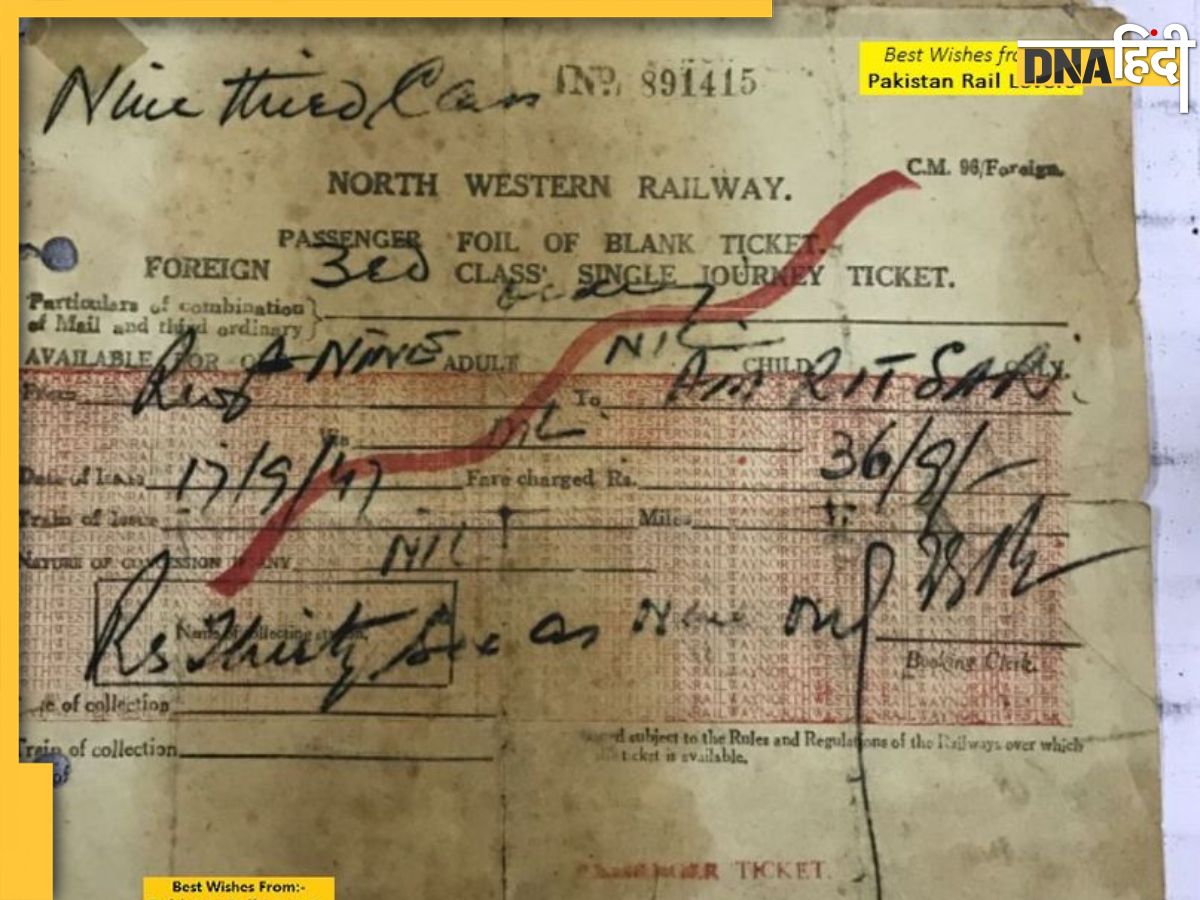 Best Wishes
Pakistan Rail
DNAहिंदी
Nine third Class
NP. 891415
C.M. 96/Foreign.
NORTH WESTERN RAILWAY.
PASSENGER FOIL OF BLANK TICKET.
FOREIGN 3rd CLASS' SINGLE JOURNEY TICKET.
Particulars of combination
of Mail and third ordinary
AVAILABLE FOR NINE ADULT NIL CHILD ONLY.
From To AMRITSAR
Via
Date of Issue 17/9/47 Fare charged Rs. 36/9/-
Train of Issue Miles
NATURE OF CONCESSION IF ANY NIL
Rs Thirty Six as Nine only
Name of collecting station,
Booking Clerk.
of collection
Train of collection
subject to the Rules and Regulations of the Railways over which
ticket is available.
PASSENGER TICKET.
Best Wishes From:-